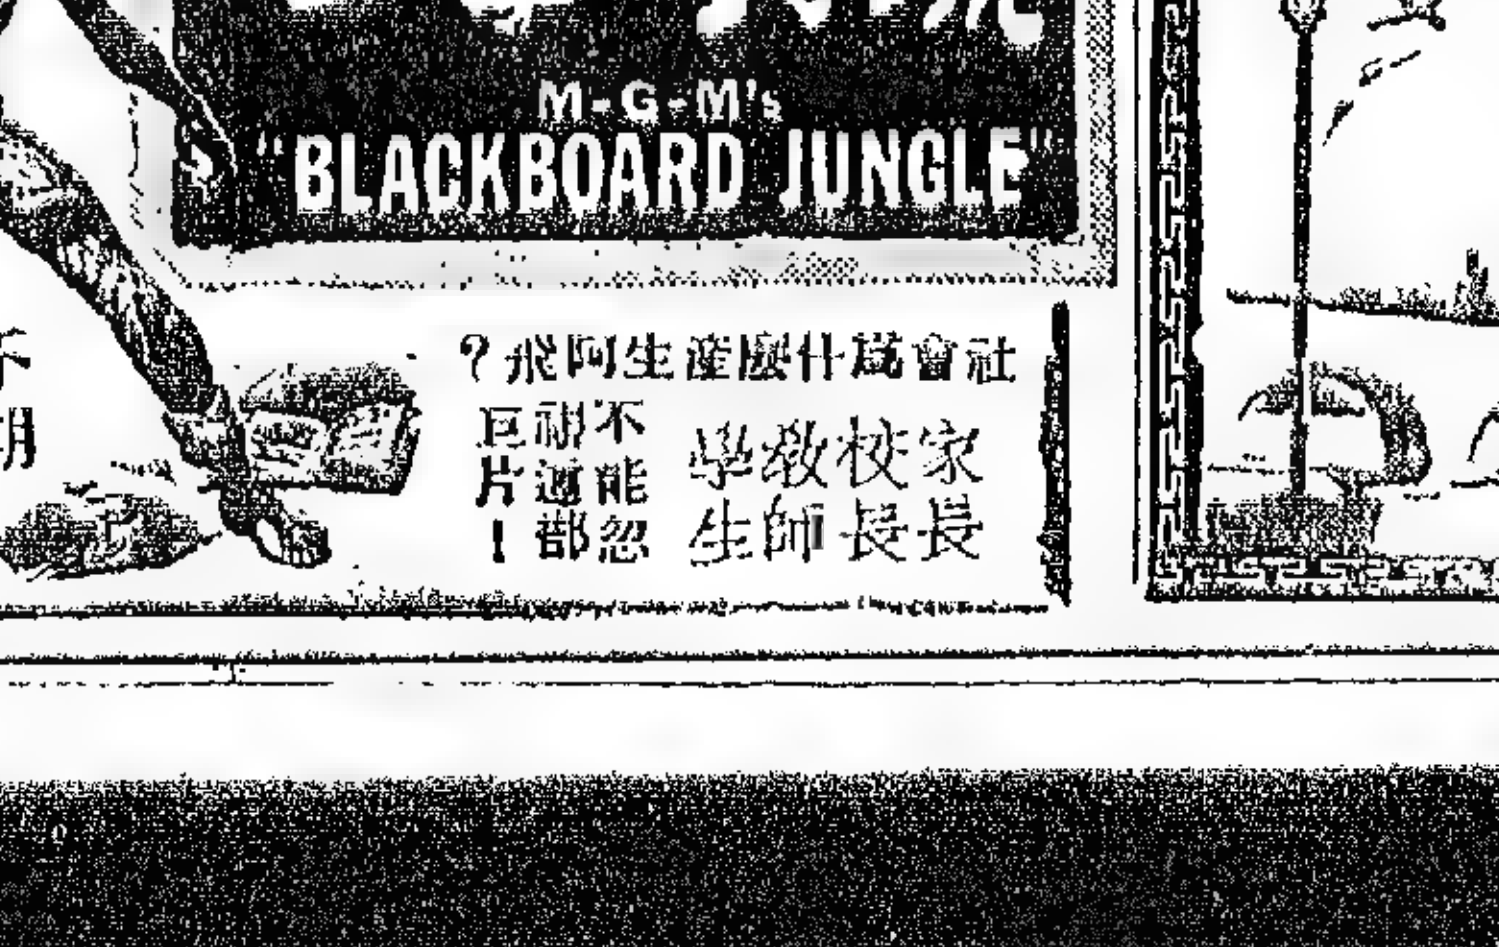 M-G-M's
"BLACKBOARD JUNGLE"
社會爲什麼產生阿飛?
家長
校長
敎師
學生
不能忽
視這部
巨片!